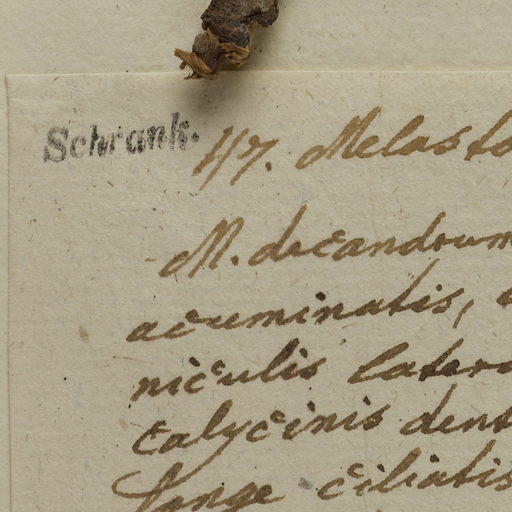 Schrank.
47. Melasto
M. decandrum
acuminatis,
niculis latera
calycinis dent
longe ciliatis